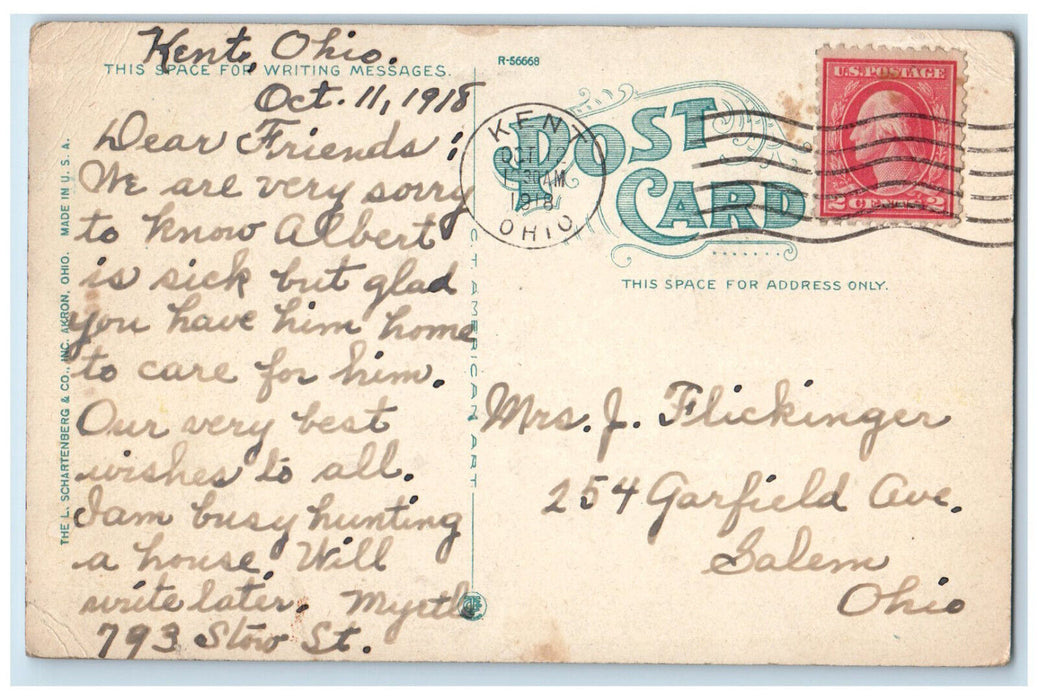 Kent, Ohio.
THIS SPACE FOR WRITING MESSAGES.
Oct. 11, 1918
Dear Friends:
We are very sorry
to know Albert
is sick but glad
you have him home
to care for him.
Our very best
wishes to all.
I am busy hunting
a house. Will
write later. Myrtle
793 Stow St.
THE L. SCHARTENBERG & CO., INC. AKRON, OHIO. MADE IN U. S. A.
AMERICAN ART
R-56668
POST
CARD
KENT
AM
1918
OHIO
U.S. POSTAGE
2 CENTS 2
THIS SPACE FOR ADDRESS ONLY.
Mrs. J. Flickinger
254 Garfield Ave.
Salem
Ohio